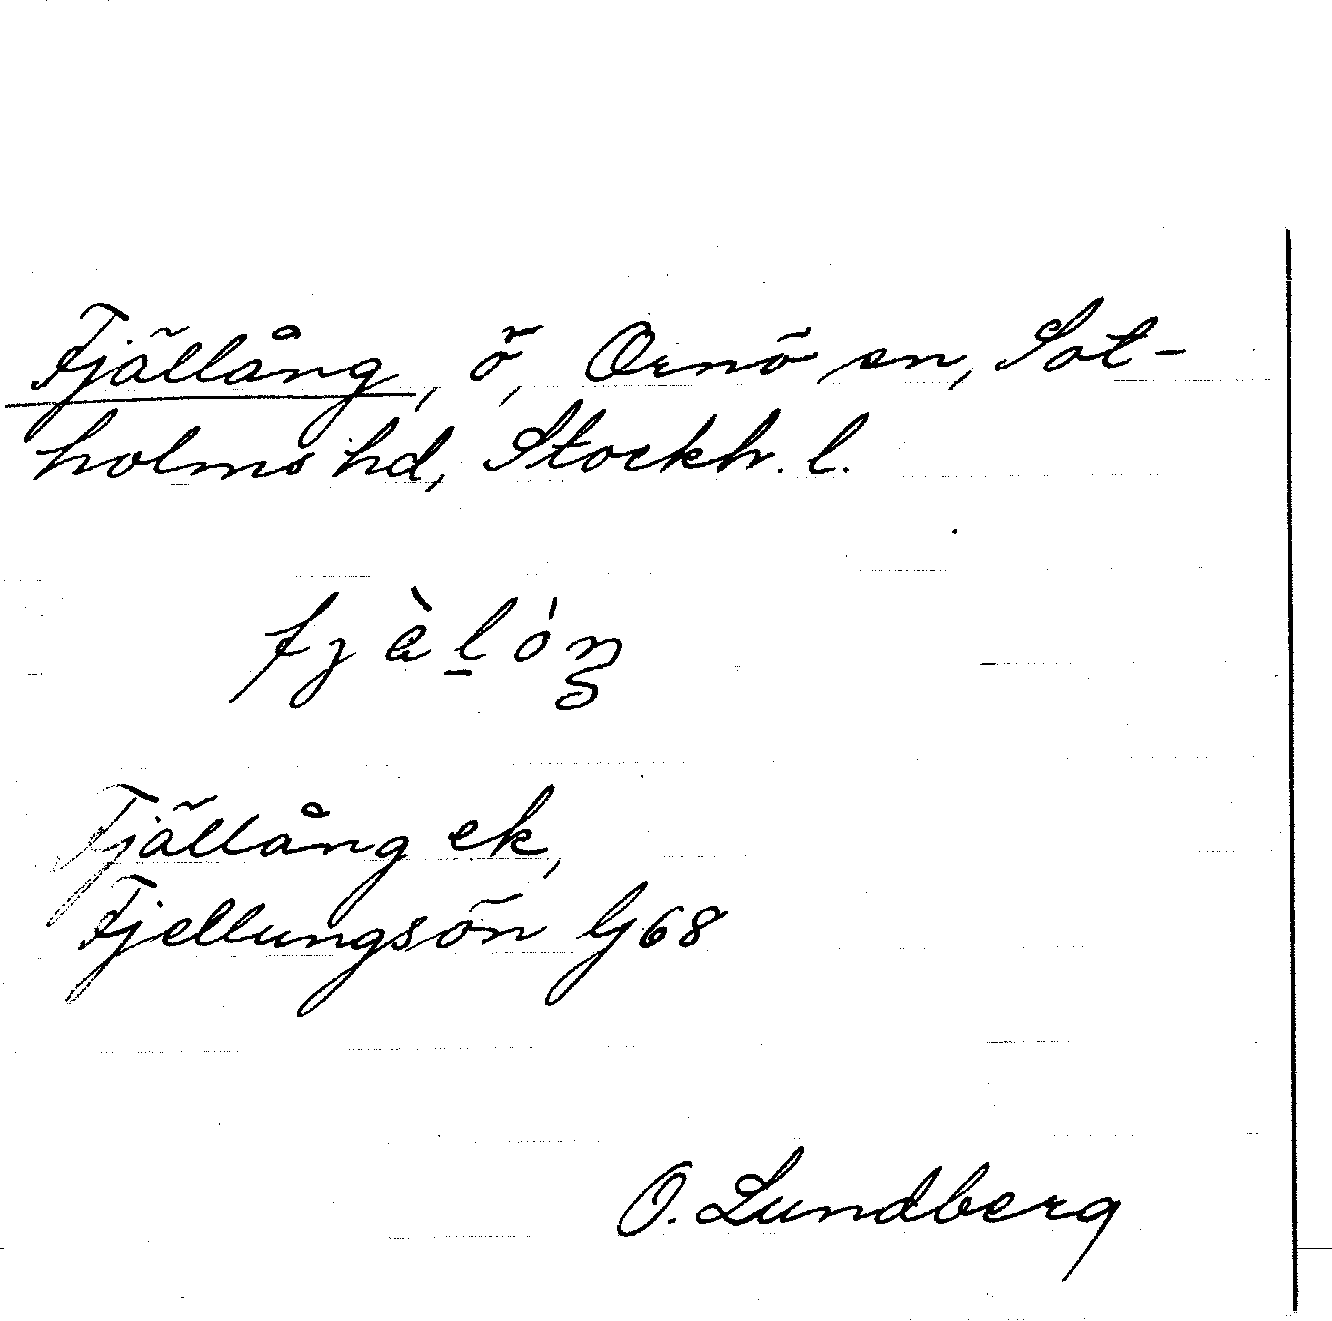 Fjällång, ö, Ornö sn, Sot-
holms hd, Stockh. l.
fjàl̲óŋ
Fjällång ek,
Fjellungsön Gj68
O. Lundberg